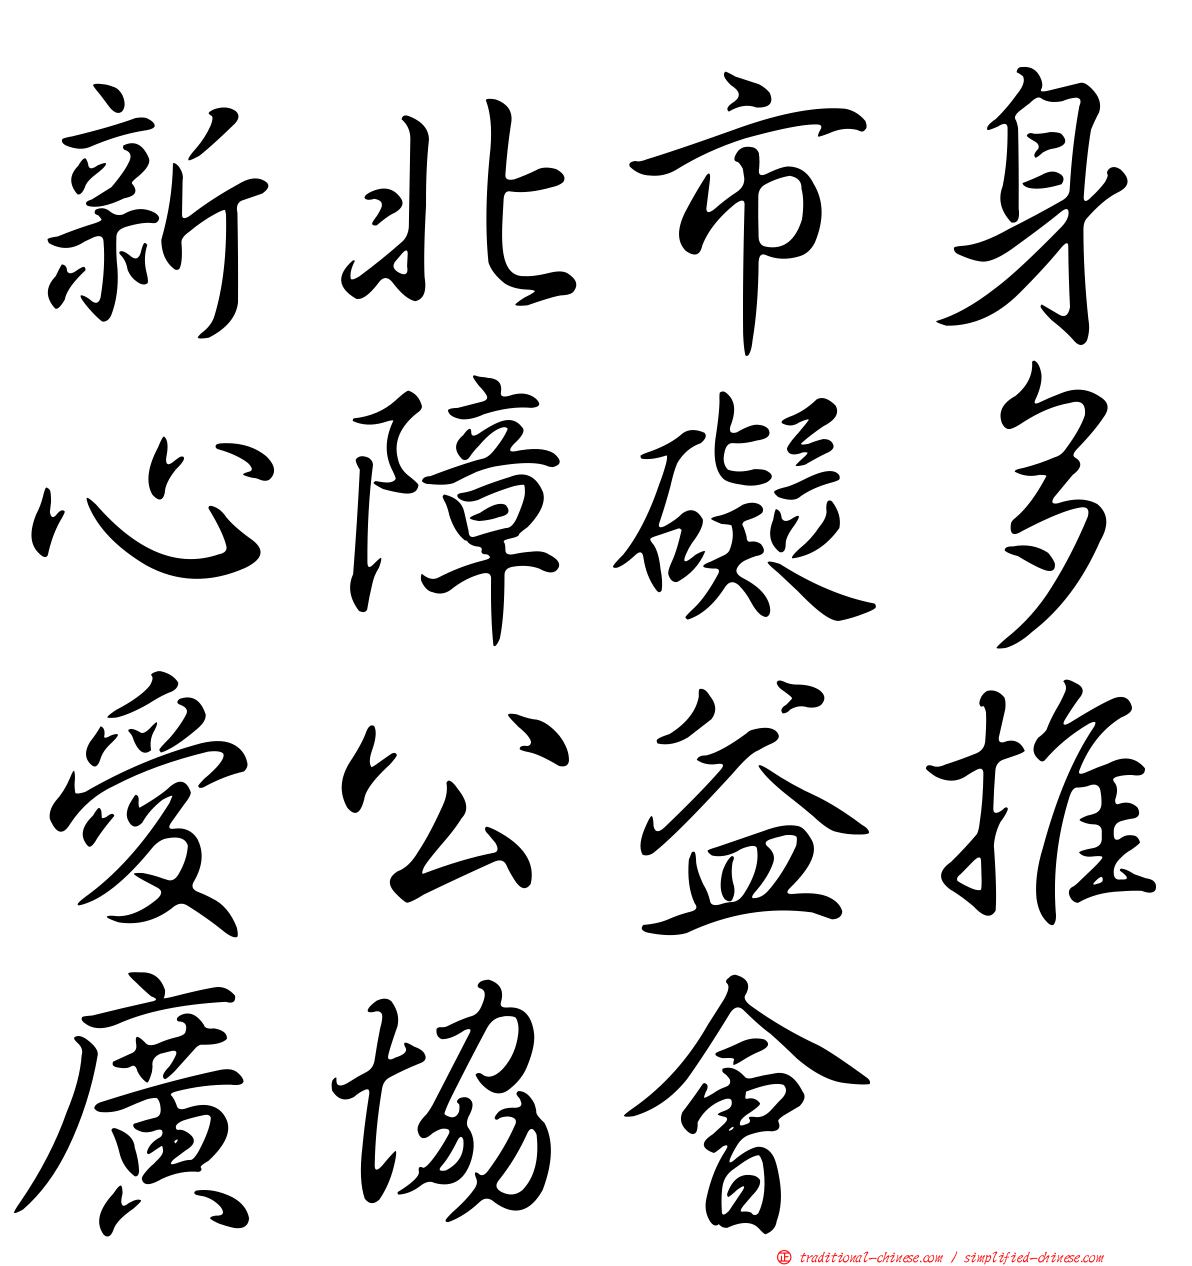 新北市身
心障礙多
愛公益推
廣協會
正 traditional-chinese.com / simplified-chinese.com